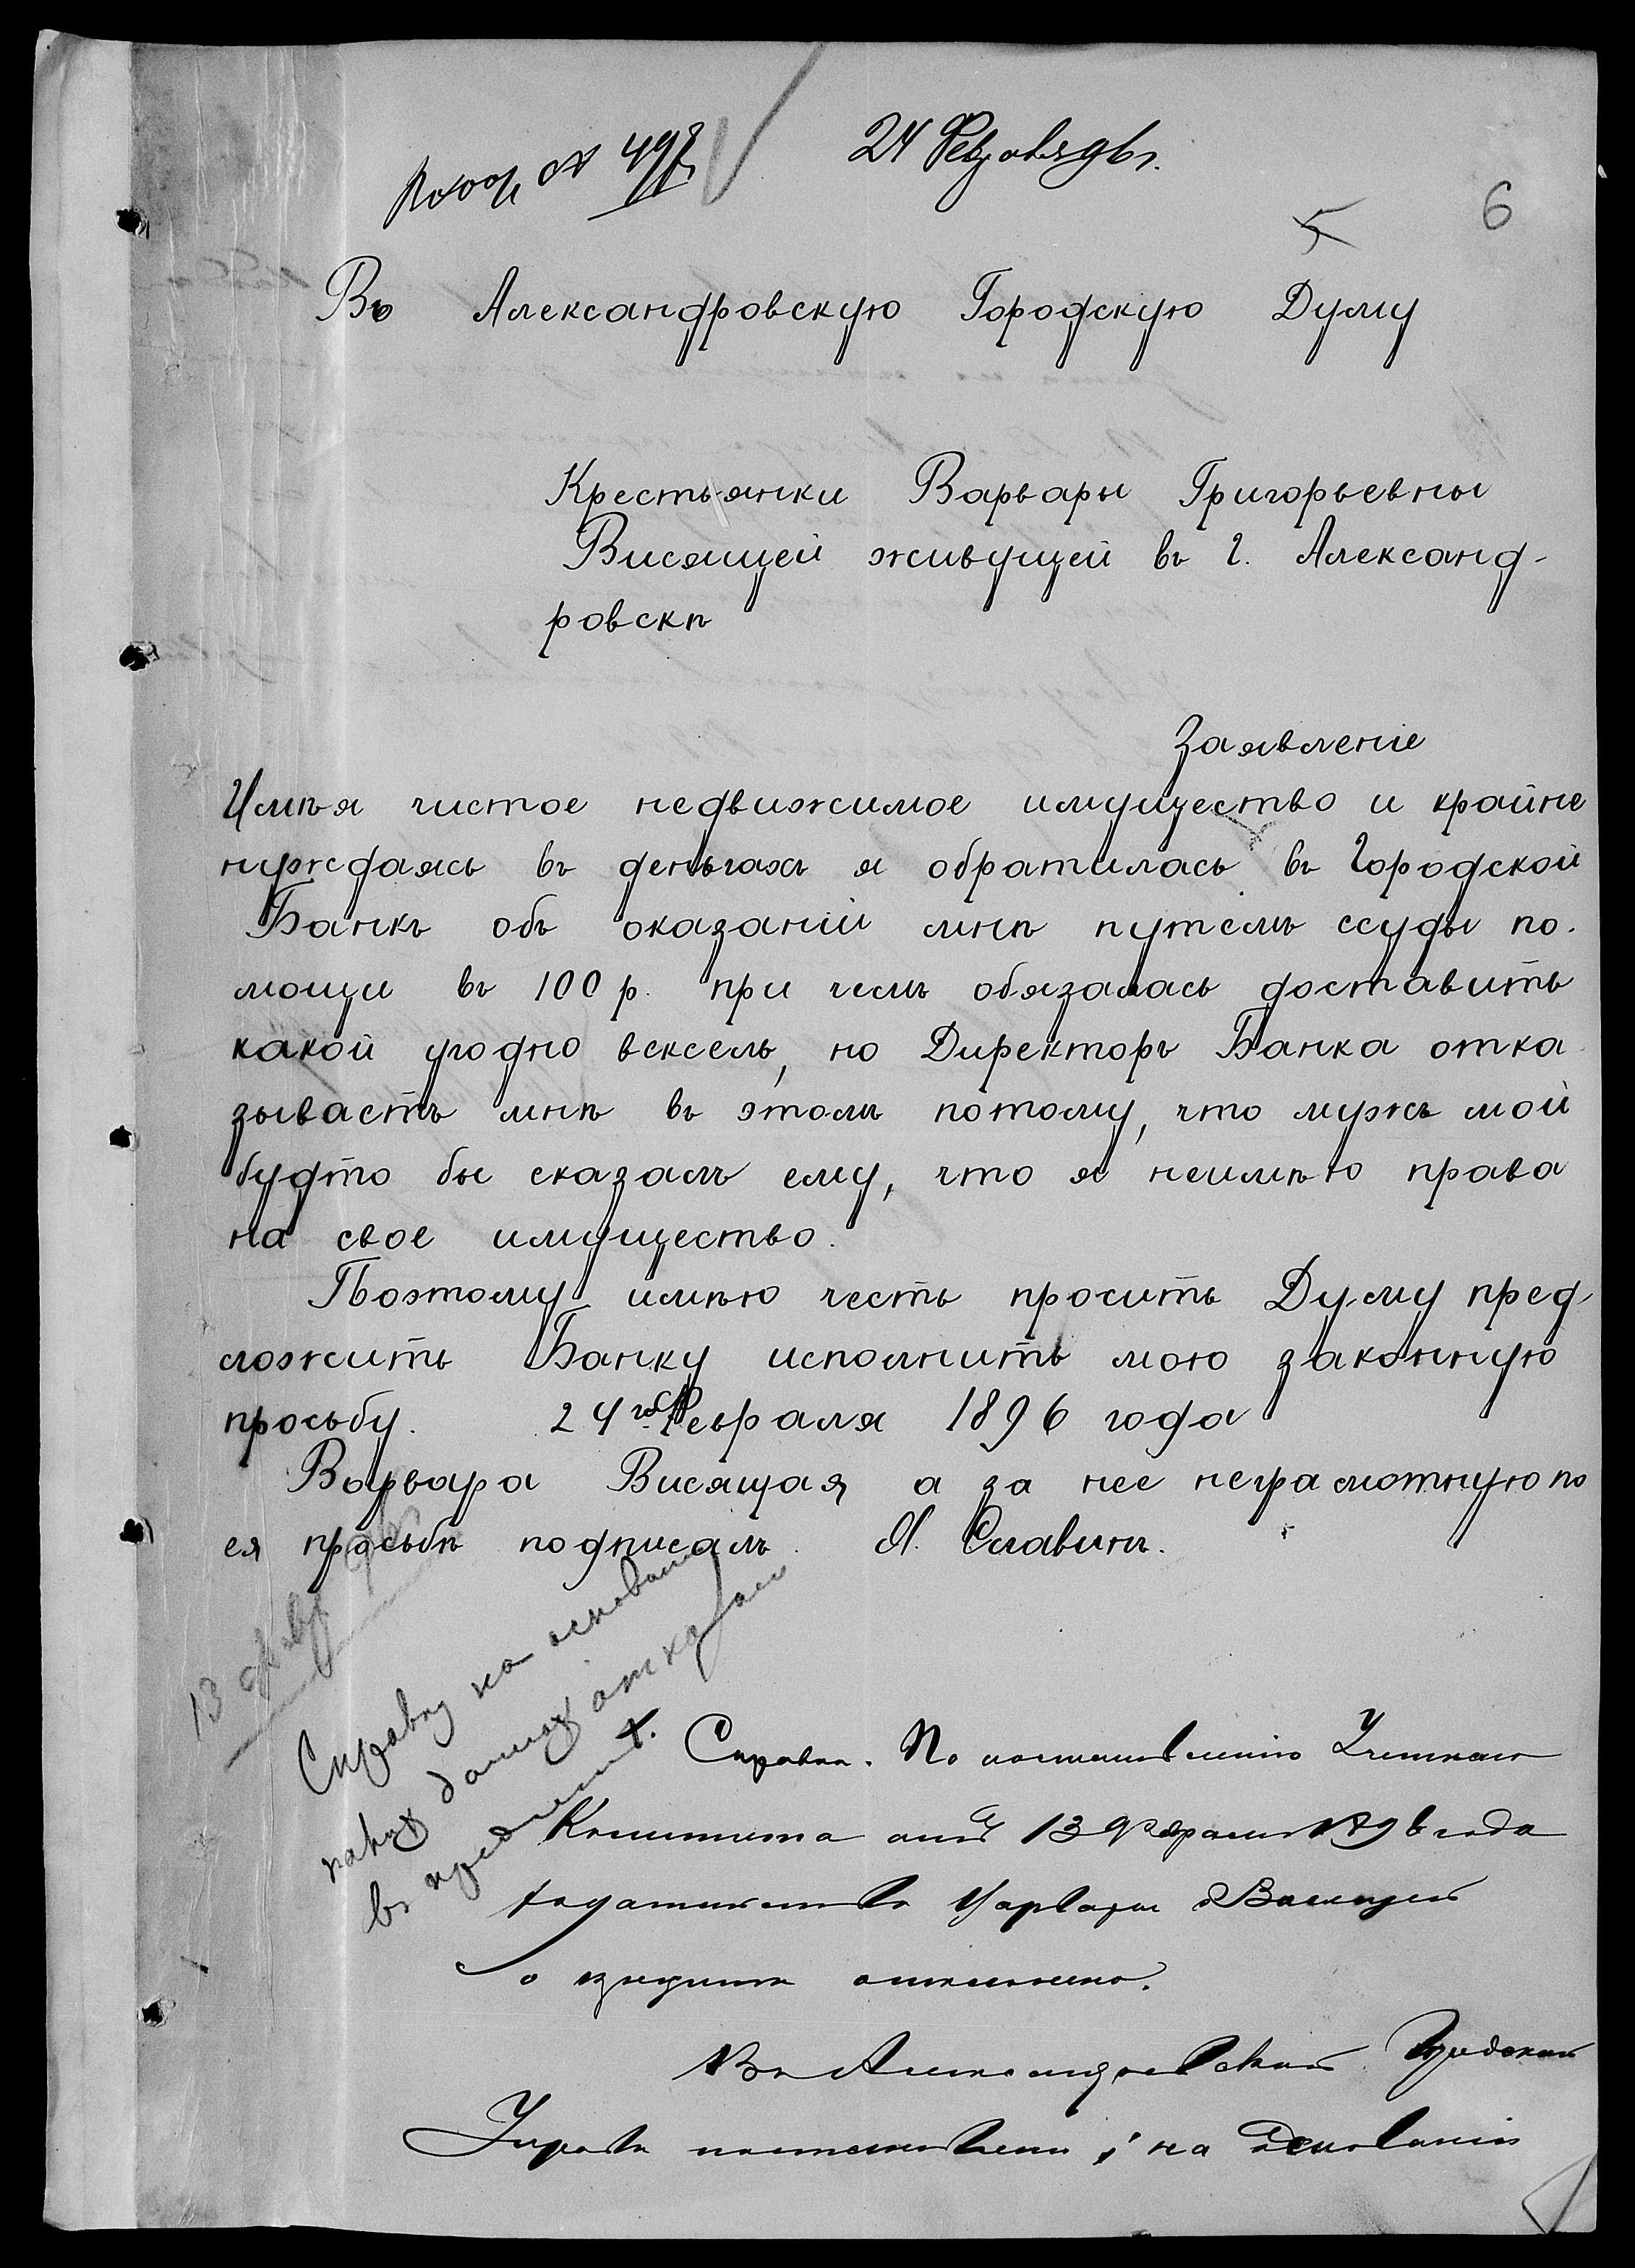 24 Февраля 96 г.
6
5
Въ Александровскую Городскую Думу
Крестьянки Варвары Григорьевны
Висящей живущей въ г. Александ-
ровскѣ
Заявленіе
Имѣя чистое недвижимое имущество и крайне
нуждаясь въ деньгахъ я обратилась въ Городской
Банкъ объ оказаніи мнѣ путемъ ссуды по-
мощи въ 100 р. при чемъ обязалась доставить
какой угодно вексель, но Директоръ Банка отка
зываетъ мнѣ въ этомъ потому, что мужъ мой
будто бы сказалъ ему, что я неимѣю права
на свое имущество.
Поэтому имѣю честь просить Думу пред-
ложить Банку исполнить мою законную
просьбу. 24го Февраля 1896 года
Варвара Висящая а за нее неграмотную по
ея просьбѣ подписалъ Я. Славинъ.
Справку на основаніи
каких данных отказано
въ кредитѣ.
Справка. По постановленію Учетнаго
Комитета отъ 13 Февраля 1896 года
ходатайство Варвары Висящей
о кредитѣ отклонено.
Въ Александровской Городской
Управѣ постановлено: на основаніи